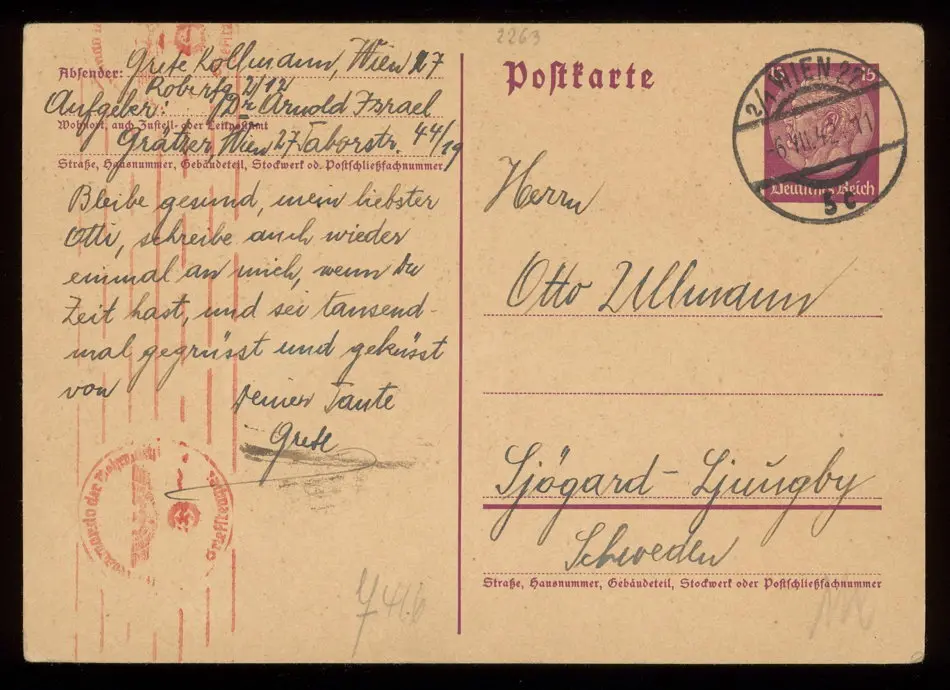 2263
Absender: Grete Kollmann, Wien 27
2/12
Aufgeber: Dr Arnold Israel
Wohnort, auch Zustell- oder Leitpostamt
Grätzer, Wien 27 Taborstr. 44/19
Straße, Hausnummer, Gebäudeteil, Stockwerk od. Postschließfachnummer
Bleibe gesund, mein liebster
Otti, schreibe auch wieder
einmal an mich, wenn Du
Zeit hast, und sei tausend-
mal gegrüsst und geküsst
von Deiner Tante
Grete
Postkarte
15 15
Deutsches Reich
2/1 WIEN 27
6.VII.42 11
5c
Herrn
Otto Ullmann
Sjögard - Ljungby
Schweden
Straße, Hausnummer, Gebäudeteil, Stockwerk oder Postschließfachnummer